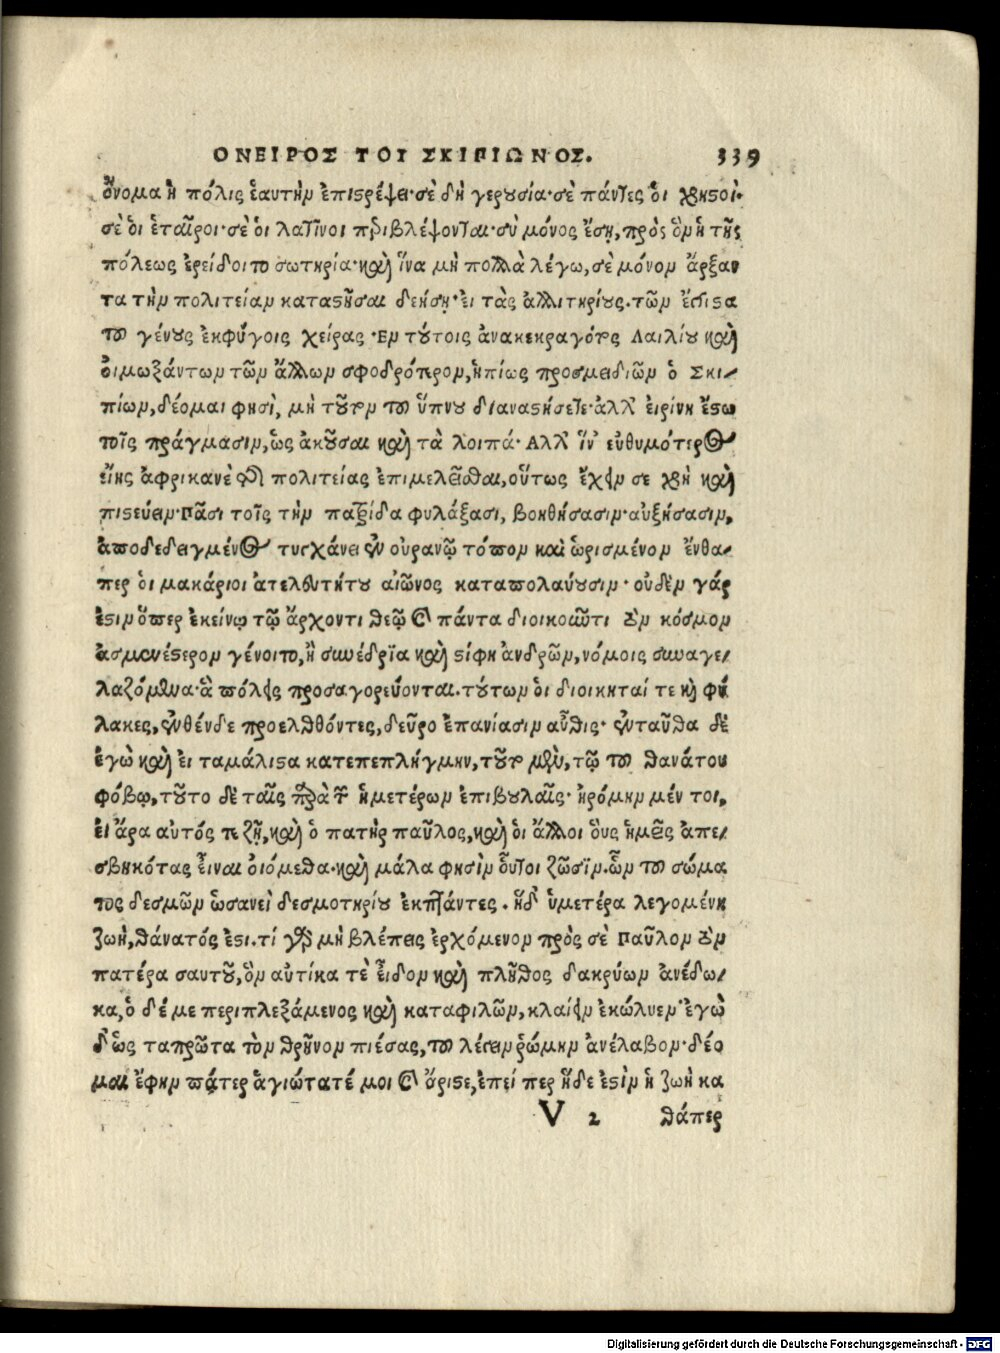 ΟΝΕΙΡΟΣ ΤΟΥ ΣΚΙΠΙΩΝΟΣ. 339
ὄνομα ἡ πόλις ἑαυτὴν ἐπιστρέψει· σὲ δὴ γερουσία· σὲ πάντες ὁι χρηστοί·
σὲ ὁι ἑταῖροι· σὲ ὁι λατῖνοι προβλέψονται· σὺ μόνος ἔσῃ, πρὸς ὃν ἡ τῆς
πόλεως ἐρείδοιτο σωτηρία· καὶ ἵνα μὴ πολλὰ λέγω, σὲ μόνον ἄρξαν
τα τὴν πολιτείαν καταστῆσαι δεήσῃ· ἐι τὰς ἀλλιτηρίους. τῶν ἔγγιστα
τοῦ γένους ἐκφύγοις χείρας · Εν τούτοις ἀνακεκραγότος Λαιλίου καὶ
ὀιμωξάντων τῶν ἄλλων σφοδρότερον, ἠπίως προσμειδιῶν ὁ Σκι-
πίων, δέομαι φησὶ, μὴ τοῦτον τοῦ ὕπνου διαναστήσετε· ἀλλ' ἐιρίνη ἔστω
τοῖς πράγμασιν, ὡς ἀκοῦσαι καὶ τὰ λοιπά· Αλλ' ἵν' εὐθυμότερος
εἴης ἀφρικανὲ περὶ πολιτείας ἐπιμελεῖσθαι, οὕτως ἔχειν σε χρὴ καὶ
πιστεύειν· Πᾶσι τοῖς τὴν πατρίδα φυλάξασι, βοηθήσασιν· αὐξήσασιν,
ἀποδεδειγμένος τυγχάνει ἐν οὐρανῷ τόπον καὶ ὡρισμένον ἔνθα-
περ ὁι μακάριοι ἀτελευτήτου αἰῶνος καταπολαύουσιν · οὐδὲν γάρ
ἐστιν ὅπερ ἐκείνῳ τῷ ἄρχοντι θεῷ καὶ πάντα διοικοῦντι τὸν κόσμον
ἀσμενέστερον γένοιτο, ἢ συνέδρια καὶ στίφη ἀνδρῶν, νόμοις συναγε-
λαζόμενα· ἃ πόλεις προσαγορεύονται. τούτων ὁι διοικηταί τε καὶ φύ
λακες, ἐνθένδε προελθόντες, δεῦρο ἐπανίασιν αὖθις· ἐνταῦθα δὲ
ἐγὼ καὶ ἐι ταμάλιστα κατεπεπλήγμην, τοῦτο μὲν, τῷ τοῦ θανάτου
φόβῳ, τοῦτο δὲ ταῖς παρὰ τῶν ἡμετέρων ἐπιβουλαῖς· ἠρόμην μέν τοι,
εἰ ἄρα αὐτός τε ζῇ, καὶ ὁ πατὴρ παῦλος, καὶ ὁι ἄλλοι ὃυς ἡμεῖς ἀπε-
σβηκότας εἶναι ὀιόμεθα· καὶ μάλα φησὶν ὅυτοι ζῶσιν. ὧν τοῦ σώμα
τος δεσμῶν ὡσανεὶ δεσμοτηρίου ἐκπτάντες . ἡδ' ὑμετέρα λεγομένη
ζωὴ, θάνατός ἐστι. τί γὰρ μὴ βλέπεις ἐρχόμενον πρὸς σὲ Παῦλον τὸν
πατέρα σαυτοῦ, ὃν αὐτίκα τὲ εἶδον καὶ πλῆθος δακρύων ἀνέδω-
κα, ὁ δέ με περιπλεξάμενος καὶ καταφιλῶν, κλαίειν ἐκώλυεν· ἐγὼ
δ' ὡς ταπρῶτα τὸν θρῆνον πιέσας, τοῦ λέγειν ῥώμην ἀνέλαβον· δέο
μαι ἔφην πάτερ ἁγιώτατέ μοι καὶ ἄριστε, ἐπεί περ ἥδε ἐστὶν ἡ ζωὴ κα
V 2 θάπερ
Digitalisierung gefördert durch die Deutsche Forschungsgemeinschaft - DFG